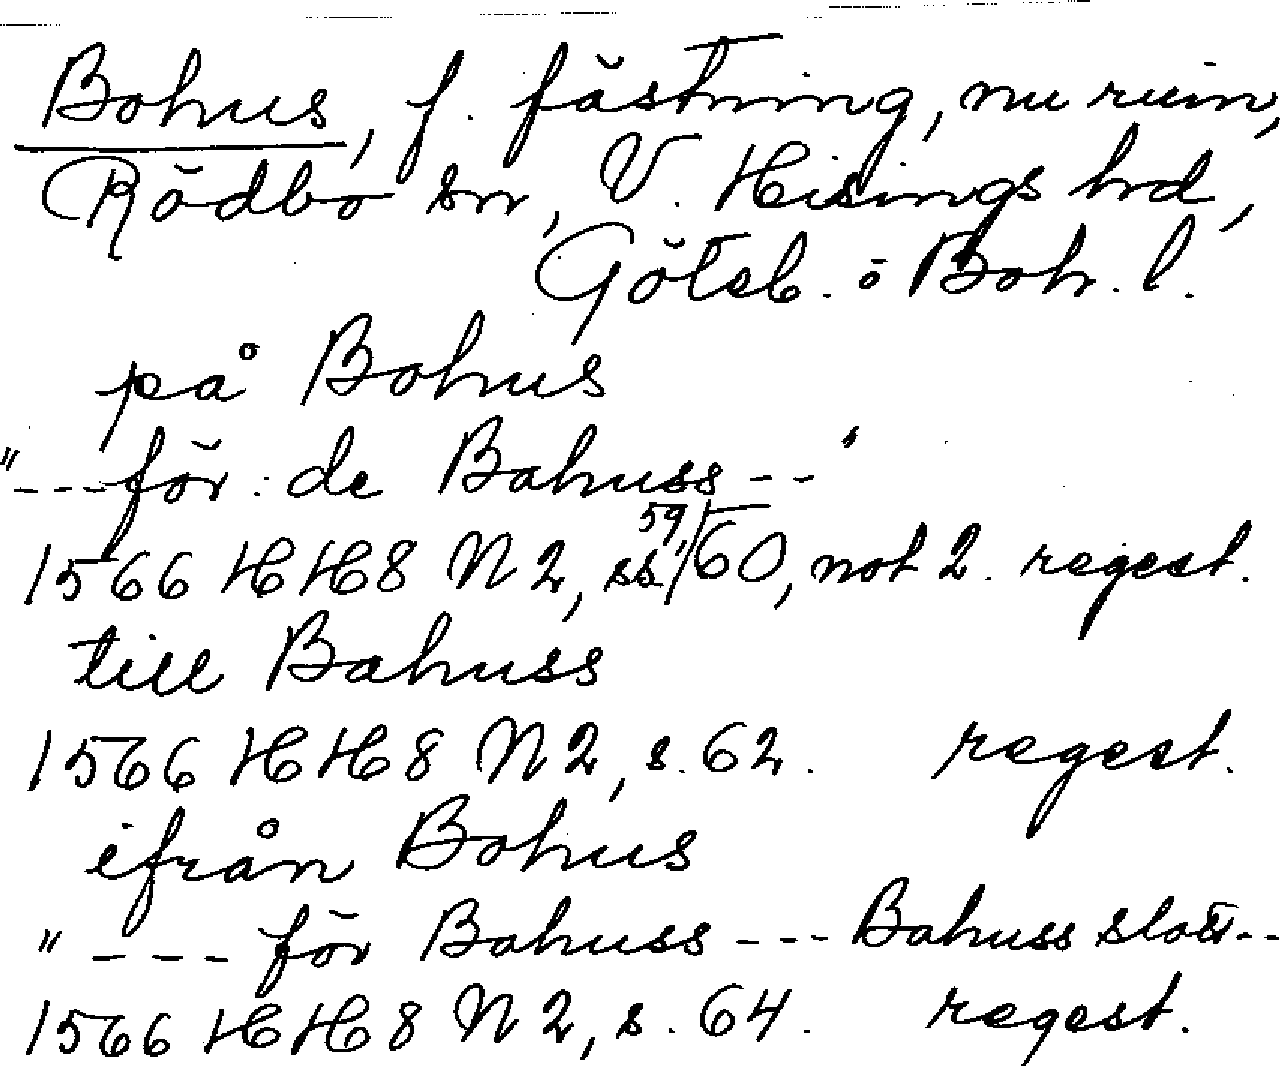 Bohus, f. fästning, nu ruin,
Rödbo sn, V. Hisings hrd,
Göteb. o Boh. l.
på Bohus
"---för: de Bahuss--"
1566 HH8 N2, ss 59/60, not 2. regest.
till Bahuss
1566 HH8 N2, s. 62. regest.
ifrån Bohus
"---- för Bahuss --- Bahuss slott--
1566 HH8 N2, s. 64. regest.